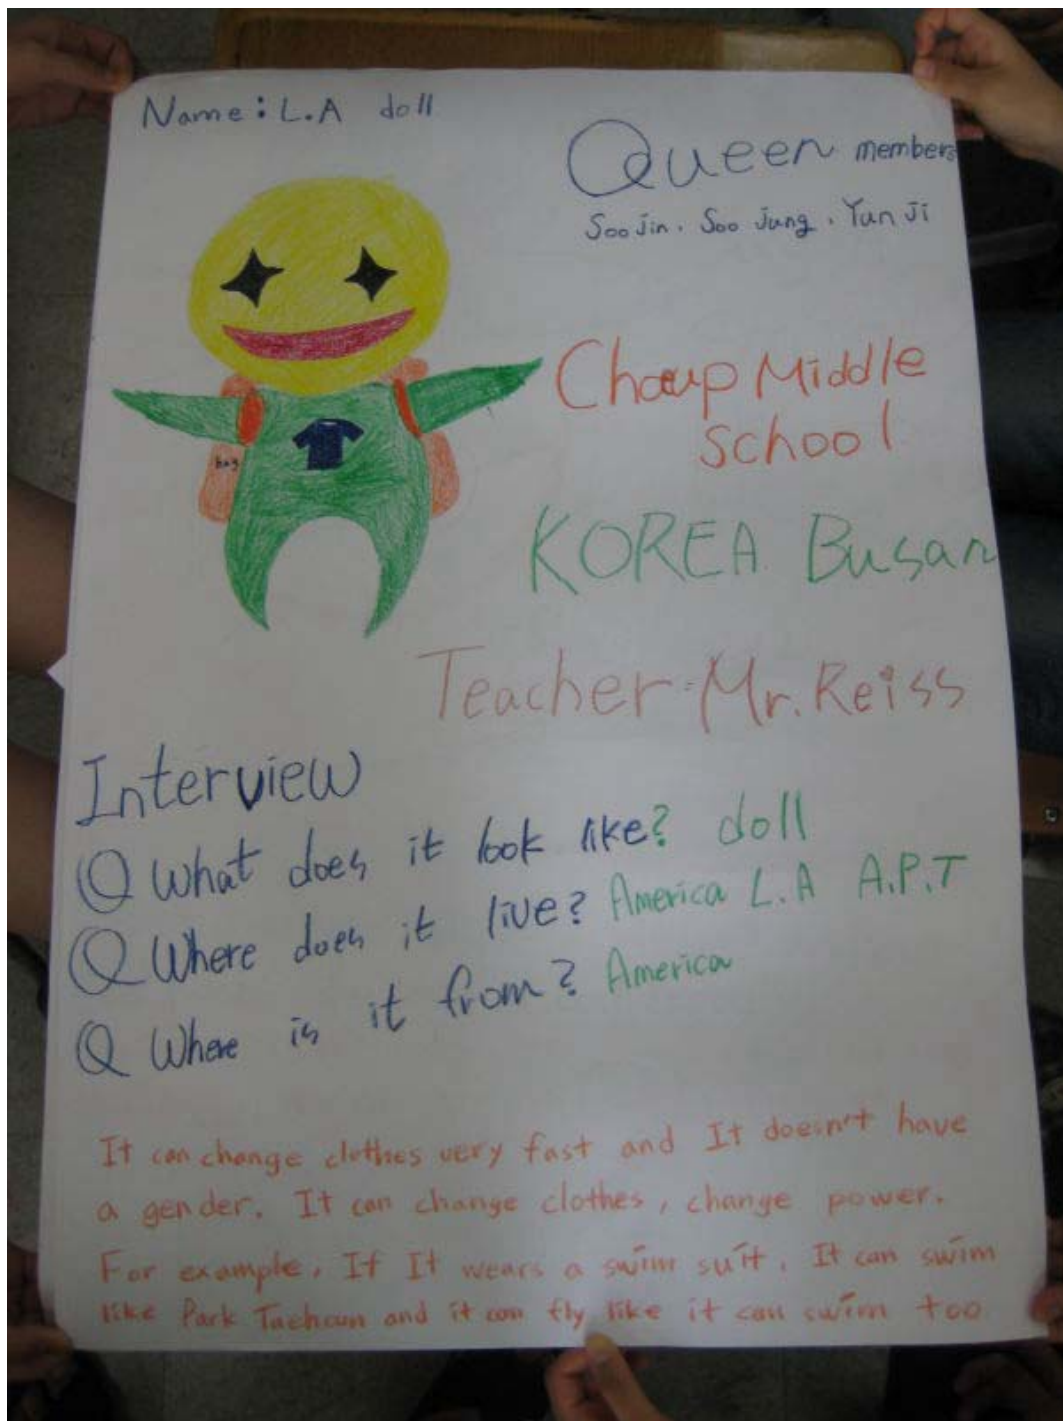 Name: L.A doll
Queen members
Soo Jin. Soo Jung. Yun Ji
Chaup Middle
School
KOREA Busan
Teacher: Mr. Reiss
bag
Interview
Q What does it look like? doll
Q Where does it live? America L.A A.P.T
Q Where is it from? America
It can change clothes very fast and It doesn't have
a gender. It can change clothes, change power.
For example, If It wears a swim suit. It can swim
like Park Taehoun and it can fly like it can swim too